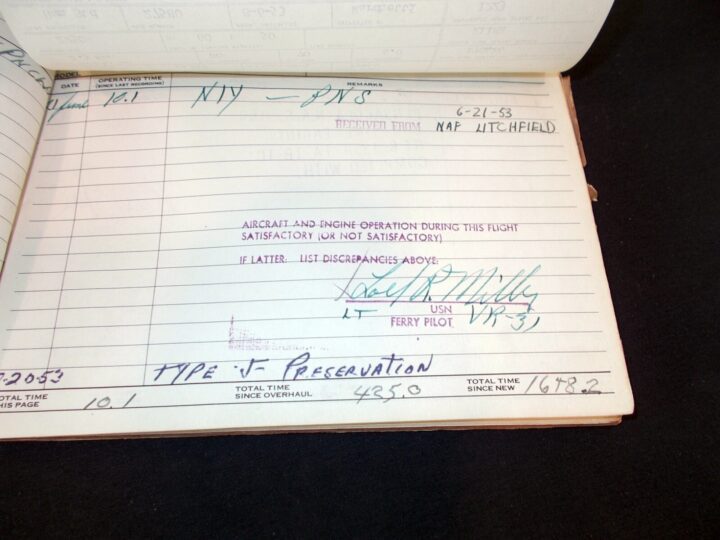 MODEL
DATE OPERATING TIME (SINCE LAST RECORDING) REMARKS
June 10.1 NIY — PNS
6-21-53
RECEIVED FROM NAF LITCHFIELD
AIRCRAFT AND ENGINE OPERATION DURING THIS FLIGHT
SATISFACTORY (OR NOT SATISFACTORY)
IF LATTER, LIST DISCREPANCIES ABOVE:
LT USN
FERRY PILOT VR-31
-20-53 TYPE "J" PRESERVATION
TOTAL TIME THIS PAGE 10.1 TOTAL TIME SINCE OVERHAUL 425.0 TOTAL TIME SINCE NEW 1648.2